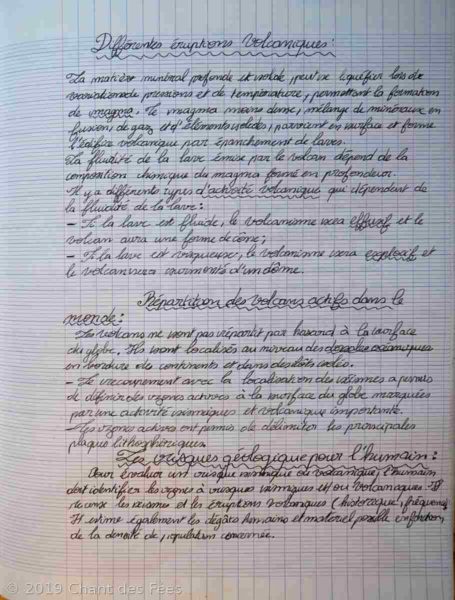 Différentes éruptions volcaniques :
La matière minéral profonde et solide, peut se liquéfier lors de
variations de pressions et de température, permettant la formation
de magma. Le magma moins dense, mélange de minéraux en
fusion de gaz et d'éléments solides, parvient en surface et forme
l'édifice volcanique par épanchement de laves.
La fluidité de la lave émise par le volcan dépend de la
composition chimique du magma formé en profondeur.
Il y a différents types d'activité volcanique qui dépendent de
la fluidité de la lave :
- Si la lave est fluide, le volcanisme sera effusif et le
volcan aura une forme de cône ;
- Si la lave est visqueuse, le volcanisme sera explosif et
le volcan sera surmonté d'un dôme.
Répartition des volcans actifs dans le
monde :
Les volcans ne sont pas réparti par hasard à la surface
du globe. Ils sont localisés au niveau des dorsales océaniques
en bordure des continents et dans des îlots isolés.
- Le recoupement avec la localisation des séismes a permis
de définir des zones actives à la surface du globe marquées
par une activité sismiques et volcanique importante.
- Les zones actives ont permis de délimiter les principales
plaques lithosphériques.
Les risques géologique pour l'humain :
Pour évaluer un risque sismique ou volcanique, l'humain
doit identifier les zones à risques sismiques et/ou volcaniques. Il
les séismes et les éruptions volcaniques (historique, fréquence
Il estime également les dégâts humains et matériel possible en fonction
de la densité de population concernée.
© 2019 Chant des Fées